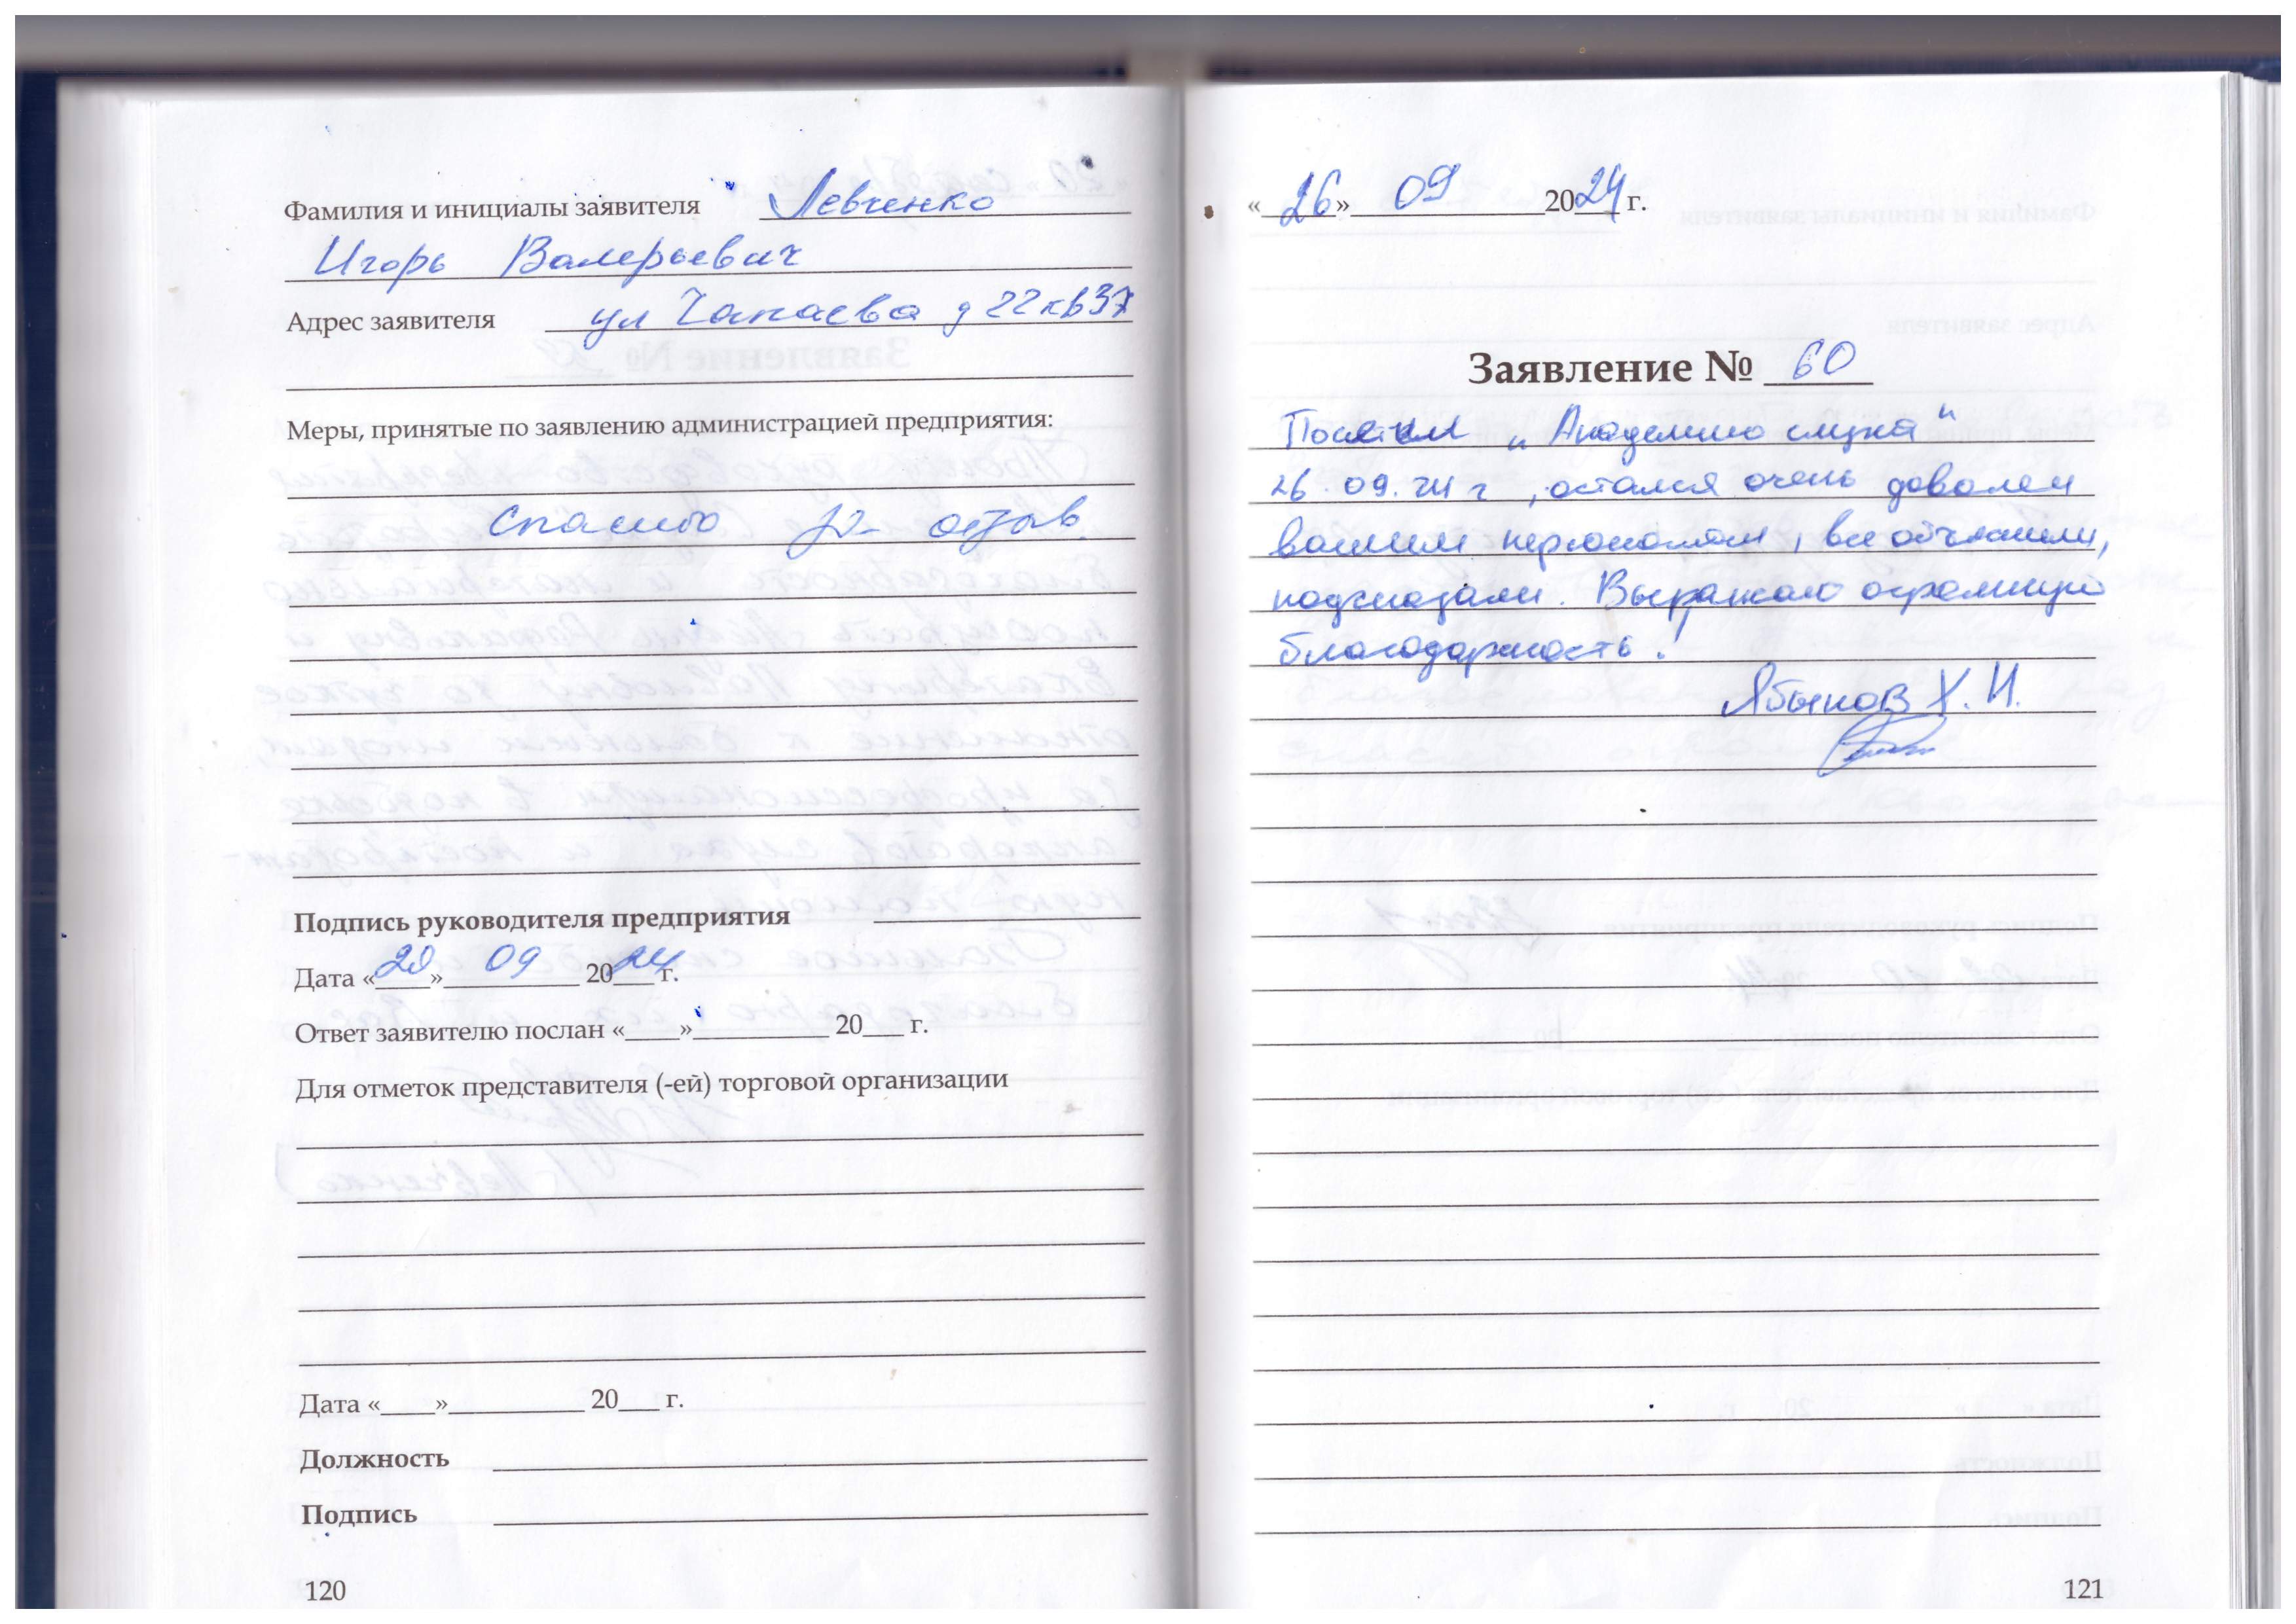 Фамилия и инициалы заявителя Левченко
Игорь Валерьевич
Адрес заявителя ул Чапаева д 22 кв 37
Меры, принятые по заявлению администрацией предприятия:
Спасибо за отзыв.
Подпись руководителя предприятия
Дата «20» 09 2024 г.
Ответ заявителю послан «____»__________ 20___ г.
Для отметок представителя (-ей) торговой организации
Дата «____»__________ 20___ г.
Должность
Подпись
120
«26» 09 2024 г.
Заявление № 60
Посетил „Академию слуха"
26.09.24 г, остался очень доволен
вашим персоналом, все объяснили,
подсказали. Выражаю огромную
благодарность!
Х. И.
121